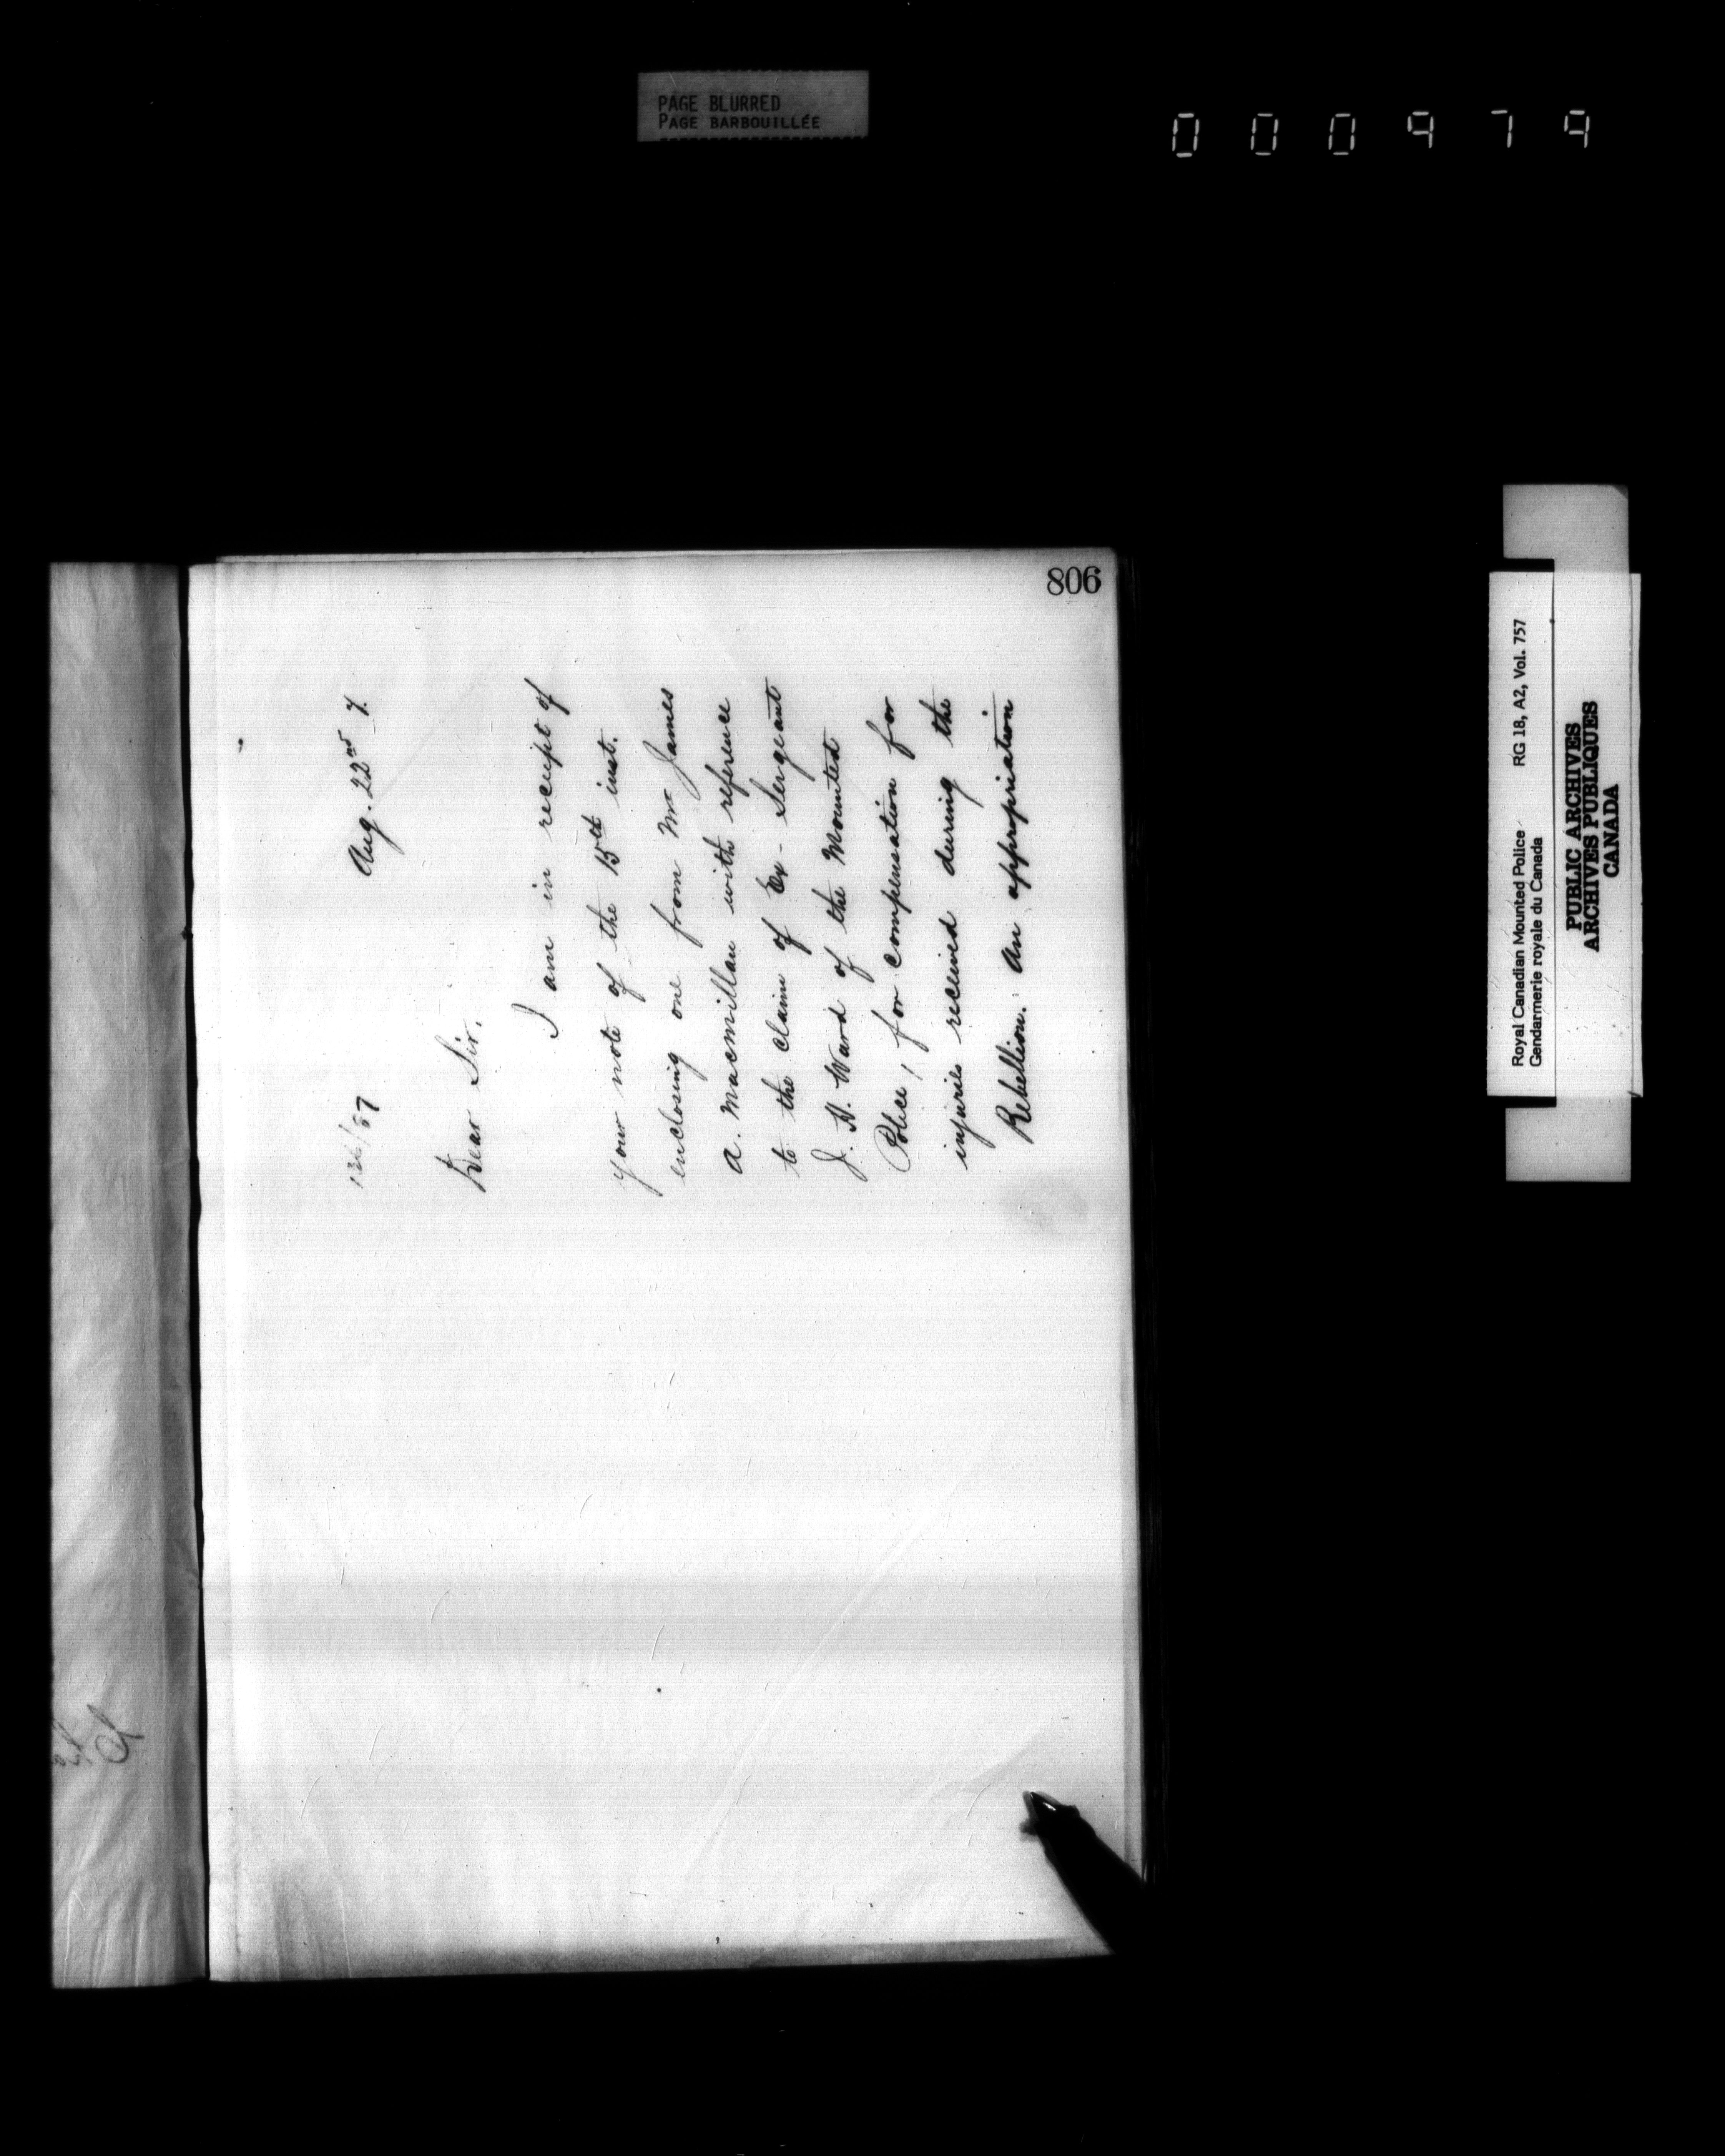 PAGE BLURRED
PAGE BARBOUILLÉE
806
136/87
Aug. 22nd 7.
Dear Sir.
I am in receipt of
your note of the 15th inst.
enclosing one from Mr James
A. Macmillan with reference
to the claim of Ex-Sergeant
J. H. Ward of the Mounted
Police, for compensation for
injuries received during the
Rebellion. An appropriation
Royal Canadian Mounted Police RG 18, A2, Vol. 757
Gendarmerie royale du Canada
PUBLIC ARCHIVES
ARCHIVES PUBLIQUES
CANADA